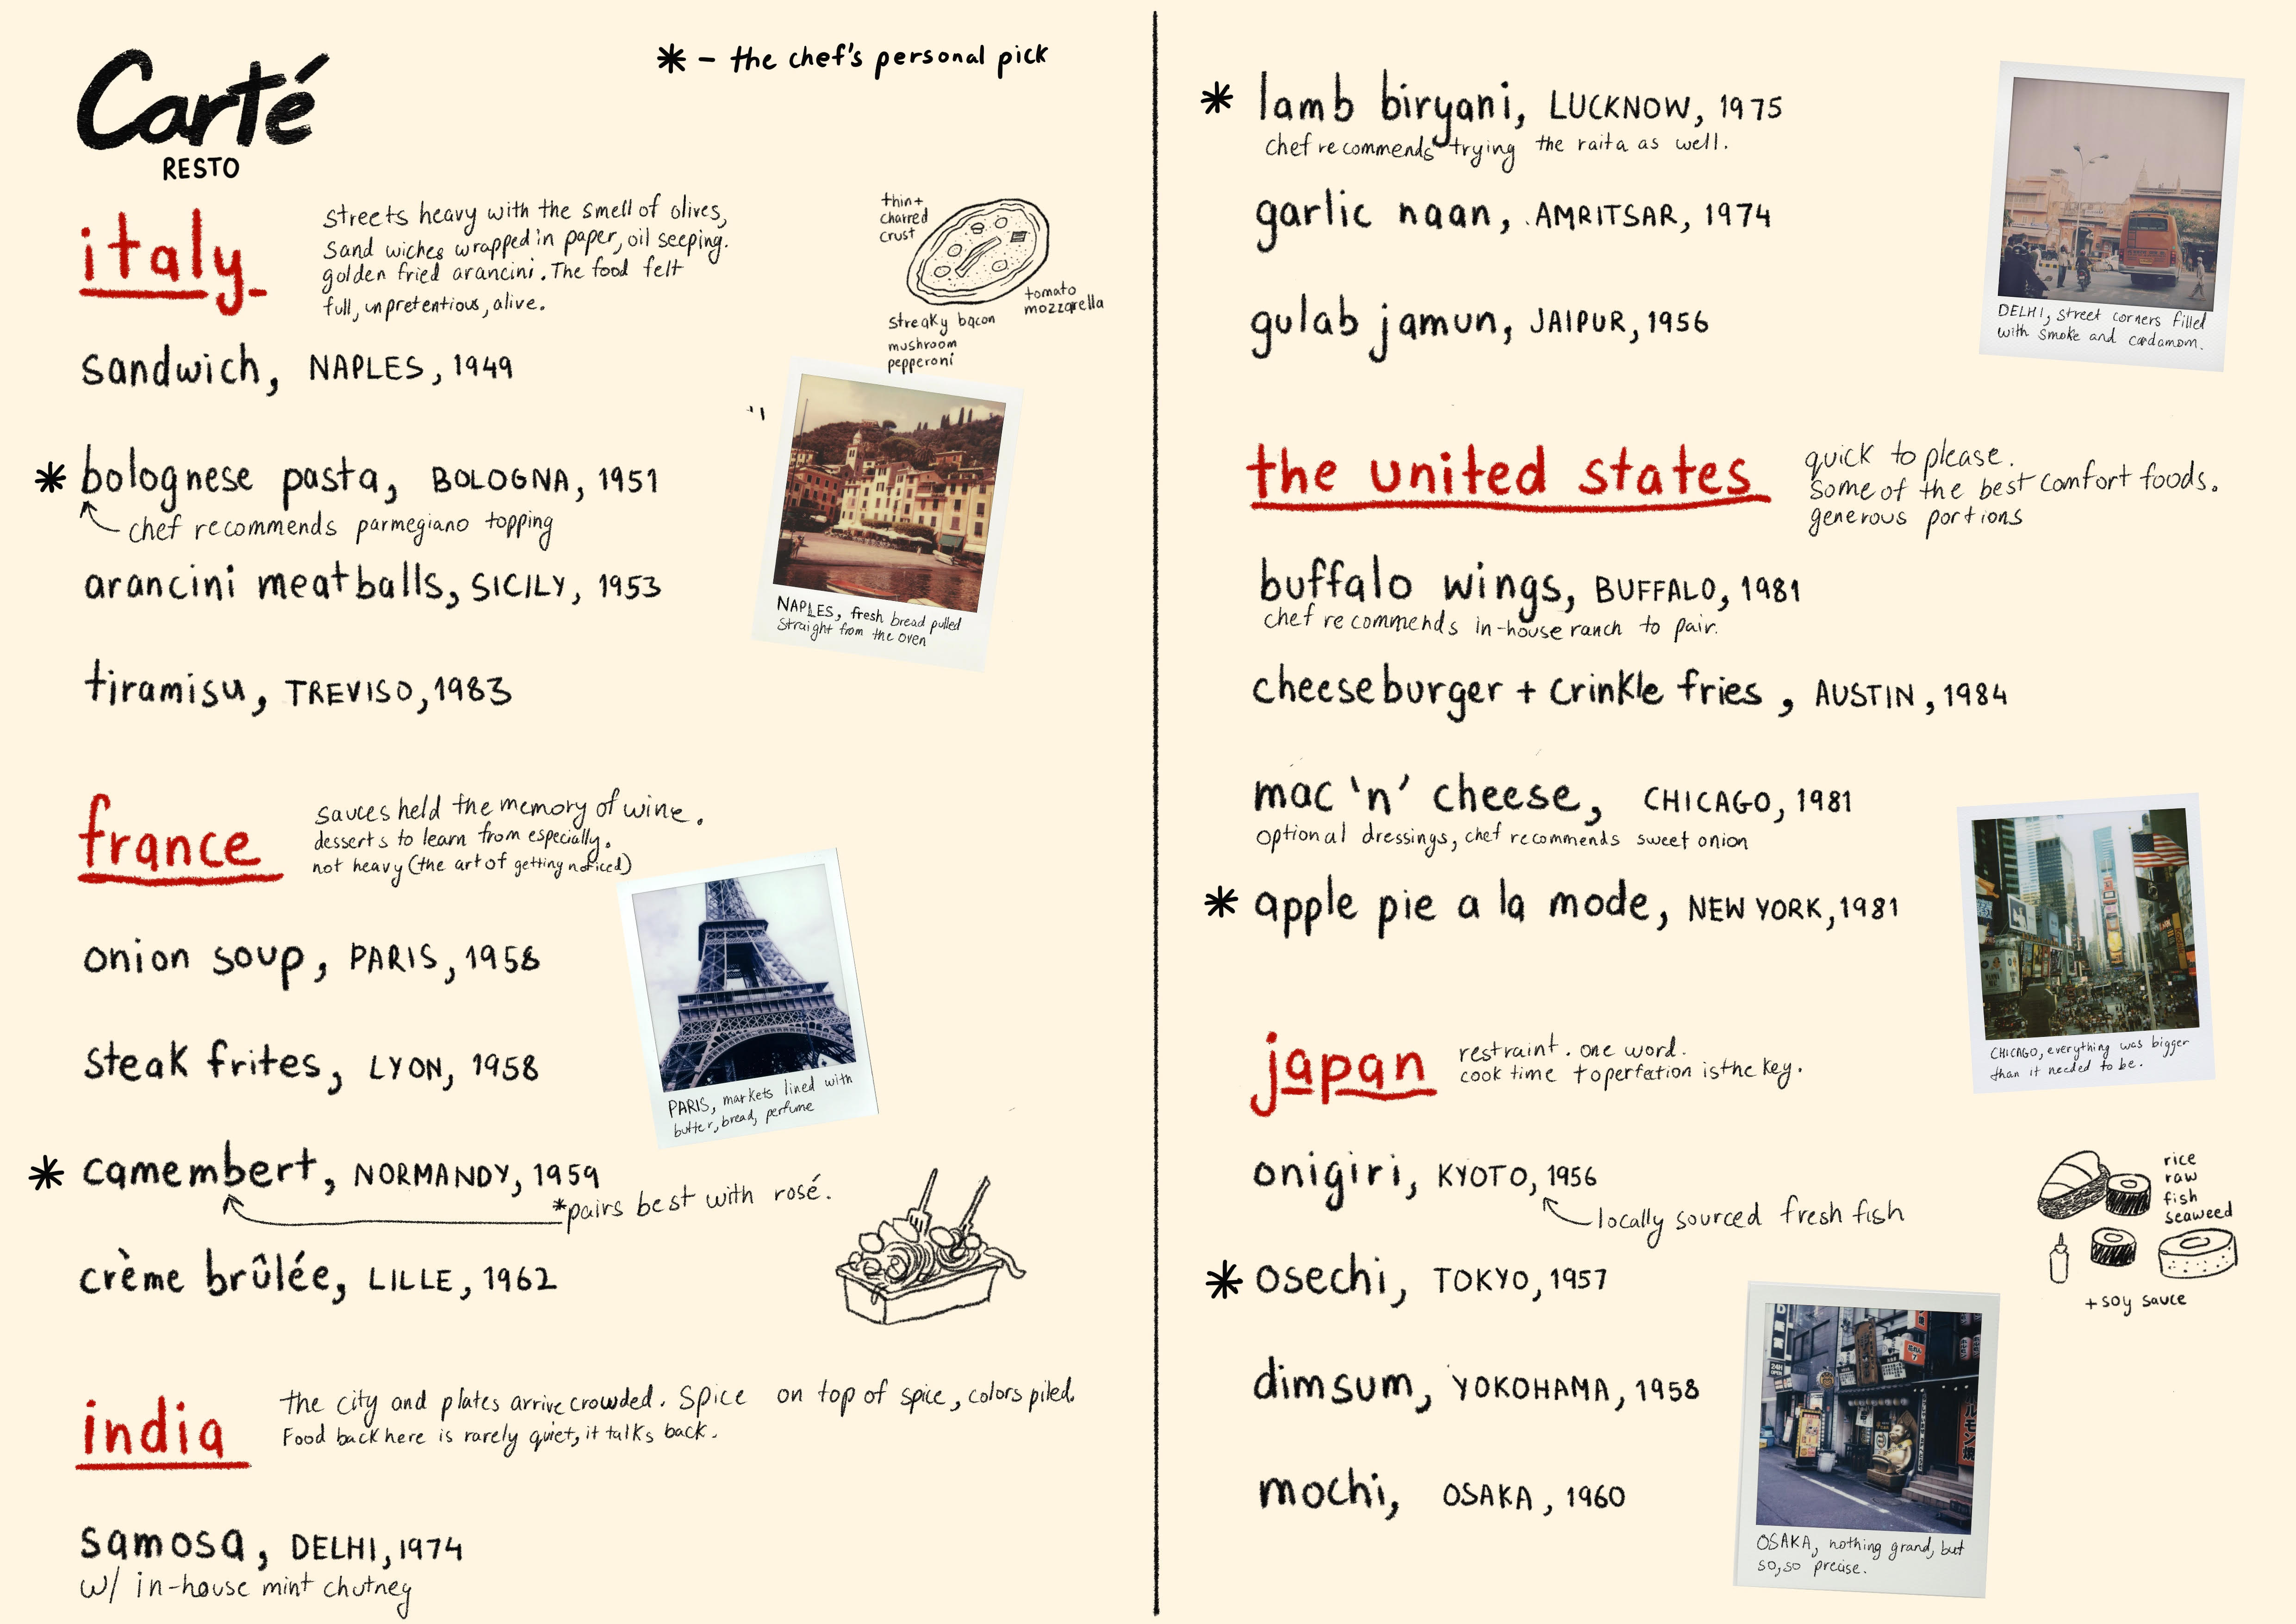 Carté
RESTO
* - the chef's personal pick
italy
streets heavy with the smell of olives,
sand wiches wrapped in paper, oil seeping.
golden fried arancini. The food felt
full, unpretentious, alive.
thin +
charred
crust
tomato
mozzarella
streaky bacon
mushroom
pepperoni
sandwich, NAPLES, 1949
* bolognese pasta, BOLOGNA, 1951
chef recommends parmegiano topping
arancini meatballs, SICILY, 1953
tiramisu, TREVISO, 1983
NAPLES, fresh bread pulled
straight from the oven
france
sauces held the memory of wine.
desserts to learn from especially.
not heavy (the art of getting noticed)
onion soup, PARIS, 1958
steak frites, LYON, 1958
* camembert, NORMANDY, 1959
*pairs best with rosé.
crème brûlée, LILLE, 1962
PARIS, markets lined with
butter, bread, perfume
india
the city and plates arrive crowded. Spice on top of spice, colors piled.
Food back here is rarely quiet, it talks back.
samosa, DELHI, 1974
w/ in-house mint chutney
* lamb biryani, LUCKNOW, 1975
chef recommends trying the raita as well.
garlic naan, AMRITSAR, 1974
gulab jamun, JAIPUR, 1956
DELHI, street corners filled
with smoke and cardamom.
the united states
quick to please.
some of the best comfort foods.
generous portions
buffalo wings, BUFFALO, 1981
chef recommends in-house ranch to pair.
cheeseburger + crinkle fries, AUSTIN, 1984
mac 'n' cheese, CHICAGO, 1981
optional dressings, chef recommends sweet onion
* apple pie a la mode, NEW YORK, 1981
CHICAGO, everything was bigger
than it needed to be.
japan
restraint. one word.
cook time to perfection is the key.
onigiri, KYOTO, 1956
locally sourced fresh fish
* osechi, TOKYO, 1957
dimsum, YOKOHAMA, 1958
mochi, OSAKA, 1960
rice
raw
fish
seaweed
+ soy sauce
OSAKA, nothing grand, but
so, so precise.